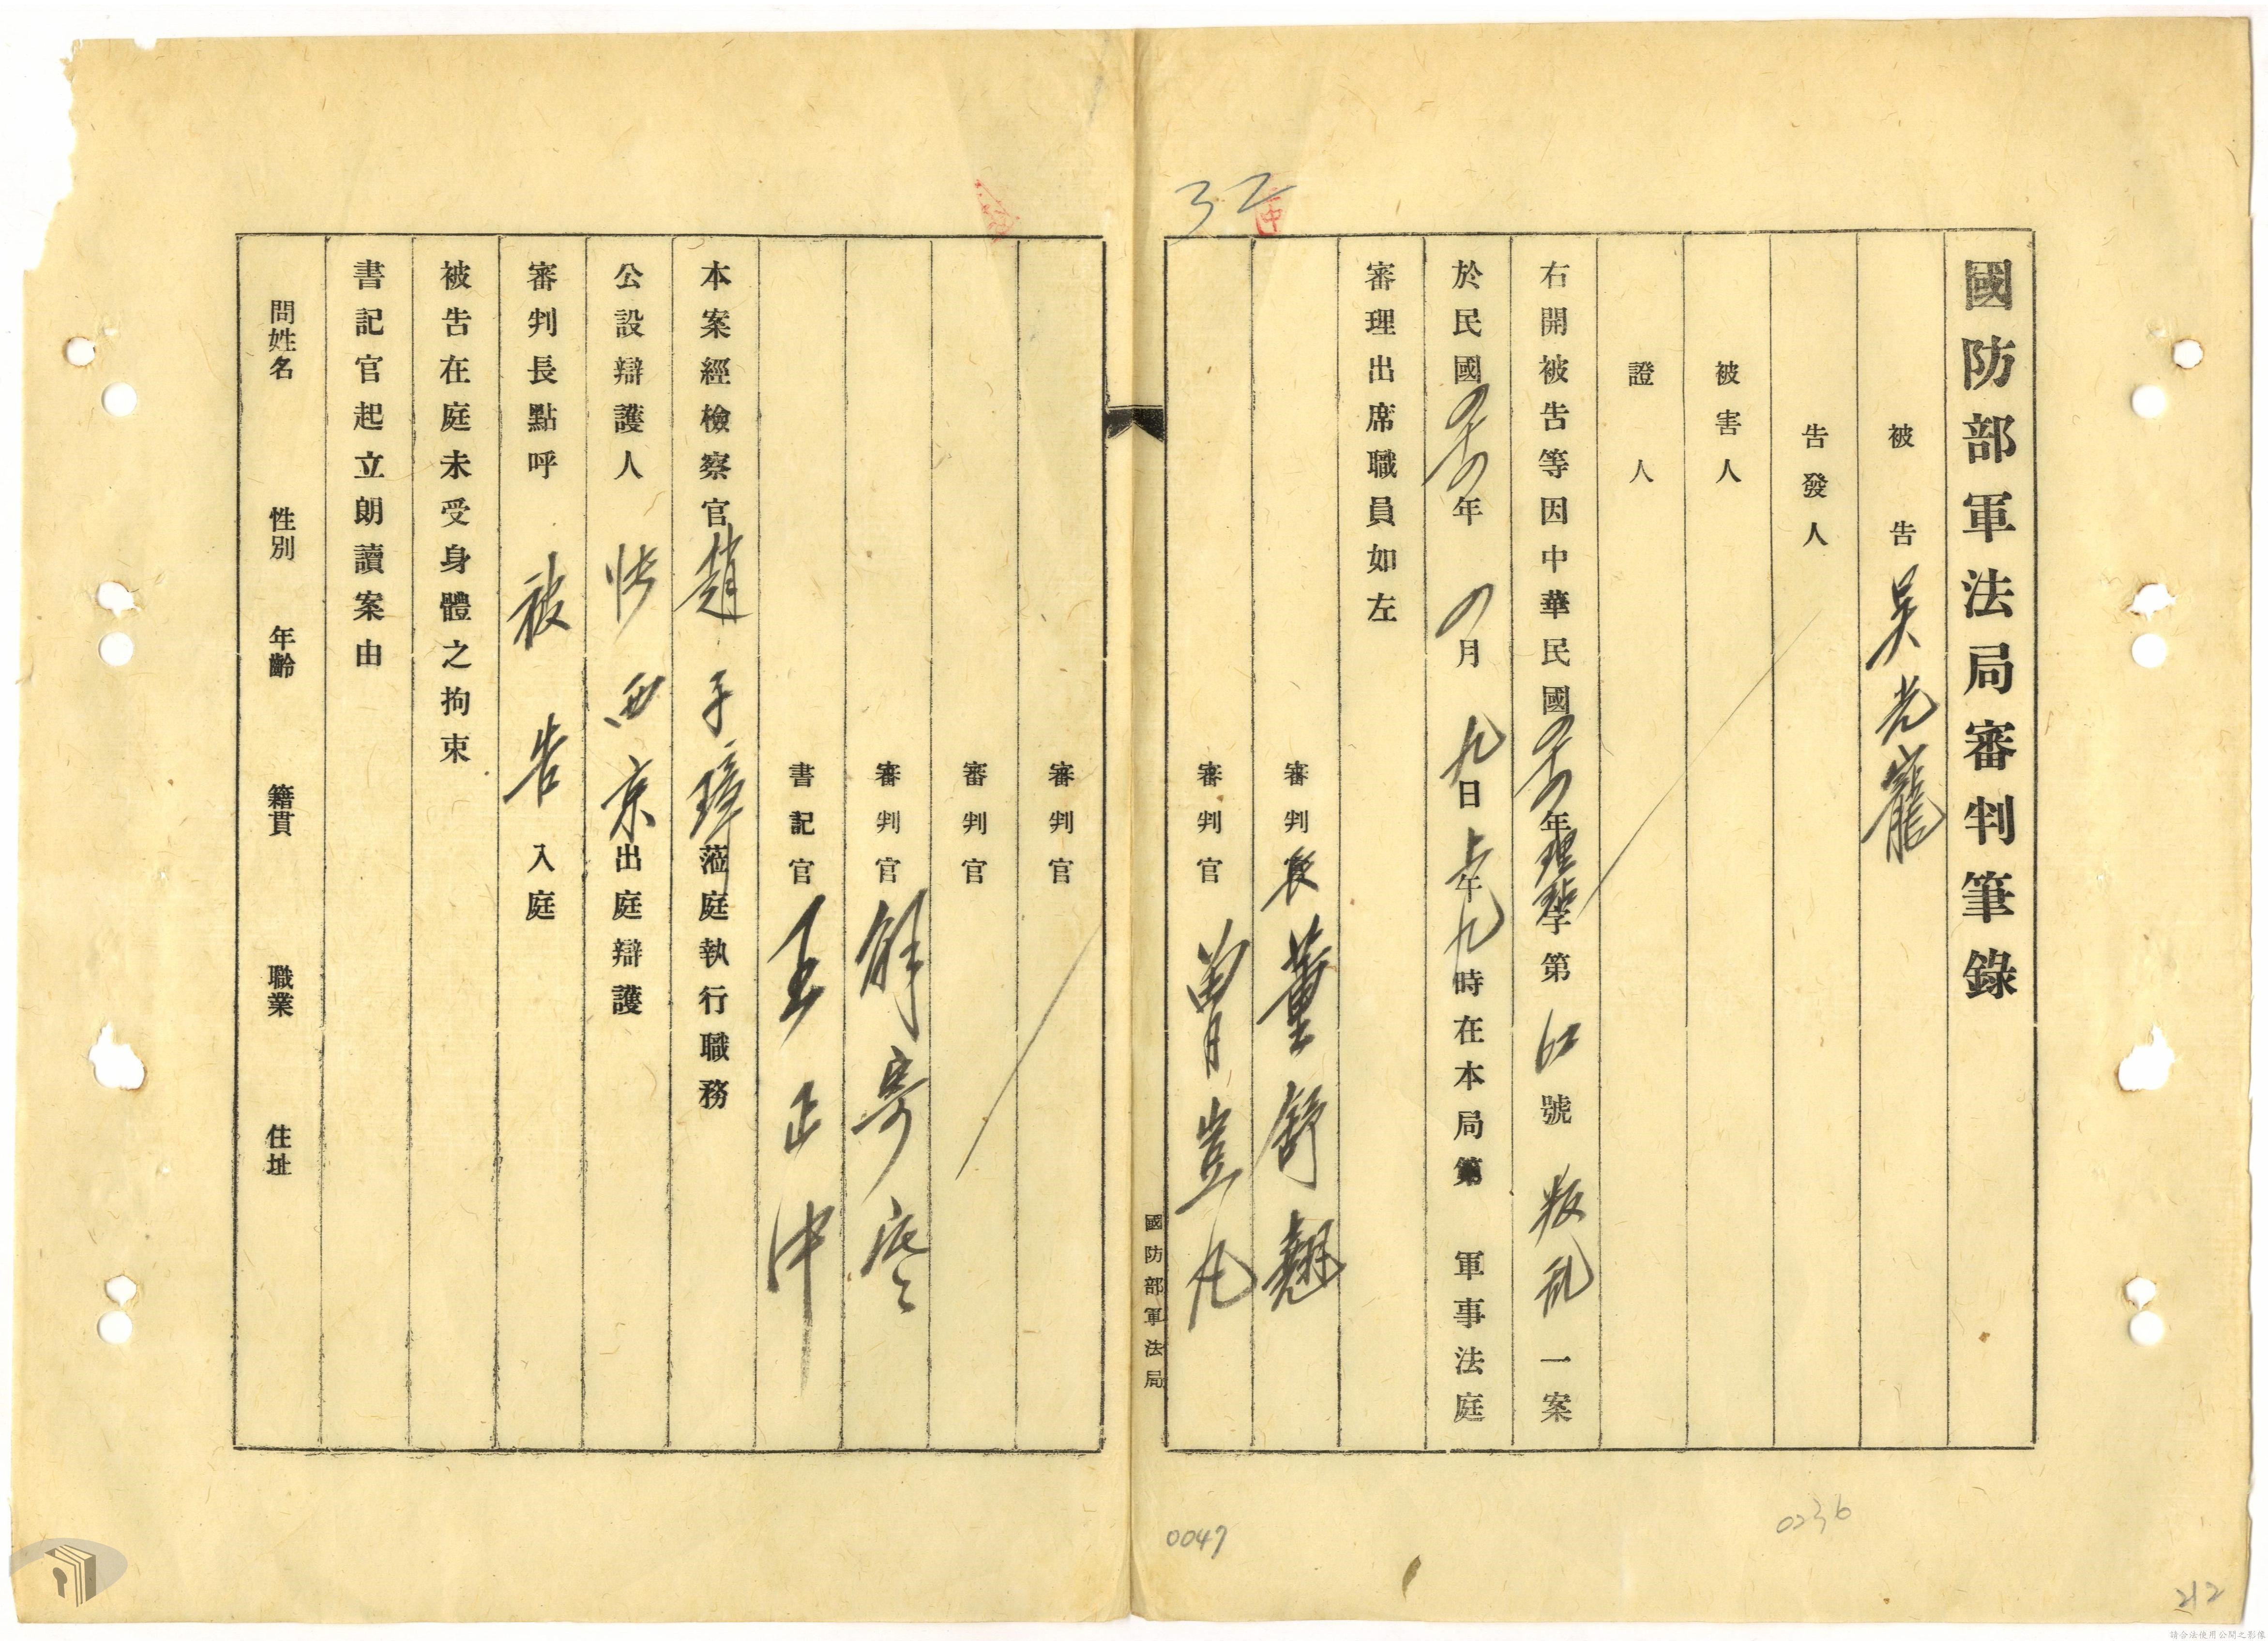 國防部軍法局審判筆錄
被告 吳光龍
告發人
被害人
證人
右開被告等因中華民國 年理 字第 號 叛乱 一案
於民國 年 月九日上午九時在本局第 軍事法庭
審理出席職員如左
審判長 董舒翹
審判官 曾豈凡
國防部軍法局
審判官
審判官
審判官
書記官 王正中
本案經檢察官趙 璋蒞庭執行職務
公設辯護人 西京出庭辯護
審判長點呼 被告 入庭
被告在庭未受身體之拘束
書記官起立朗讀案由
問姓名 性別 年齡 籍貫 職業 住址
32
0047
0236
212
請合法使用公開之影像